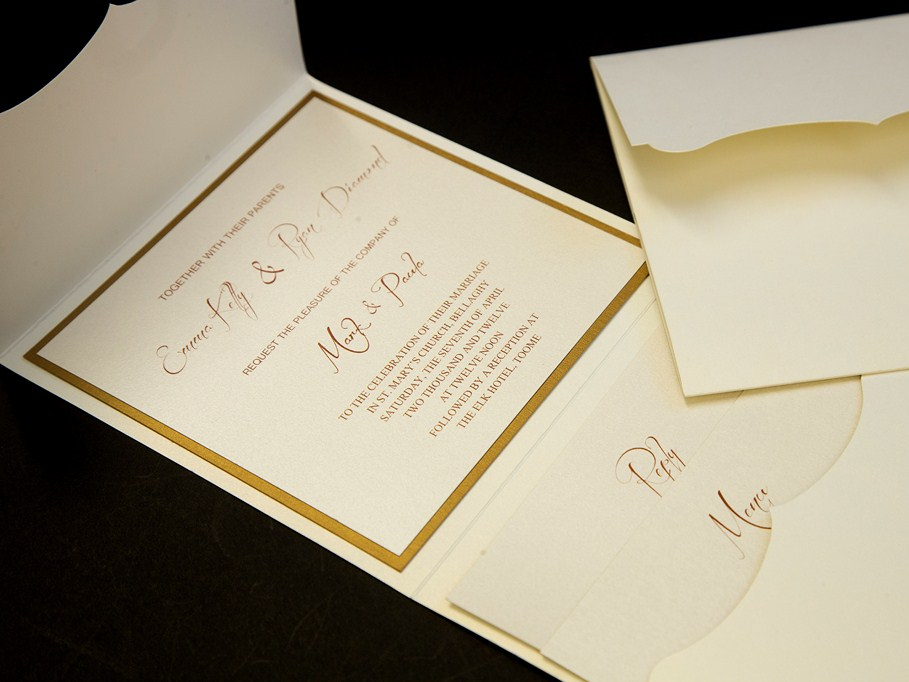 TOGETHER WITH THEIR PARENTS
Emma Kelly & Ryan Diamond
REQUEST THE PLEASURE OF THE COMPANY OF
Mark & Paula
TO THE CELEBRATION OF THEIR MARRIAGE
IN ST. MARY'S CHURCH, BELLAGHY
SATURDAY, THE SEVENTH OF APRIL
TWO THOUSAND AND TWELVE
AT TWELVE NOON
FOLLOWED BY A RECEPTION AT
THE ELK HOTEL, TOOME
Reply
Menu